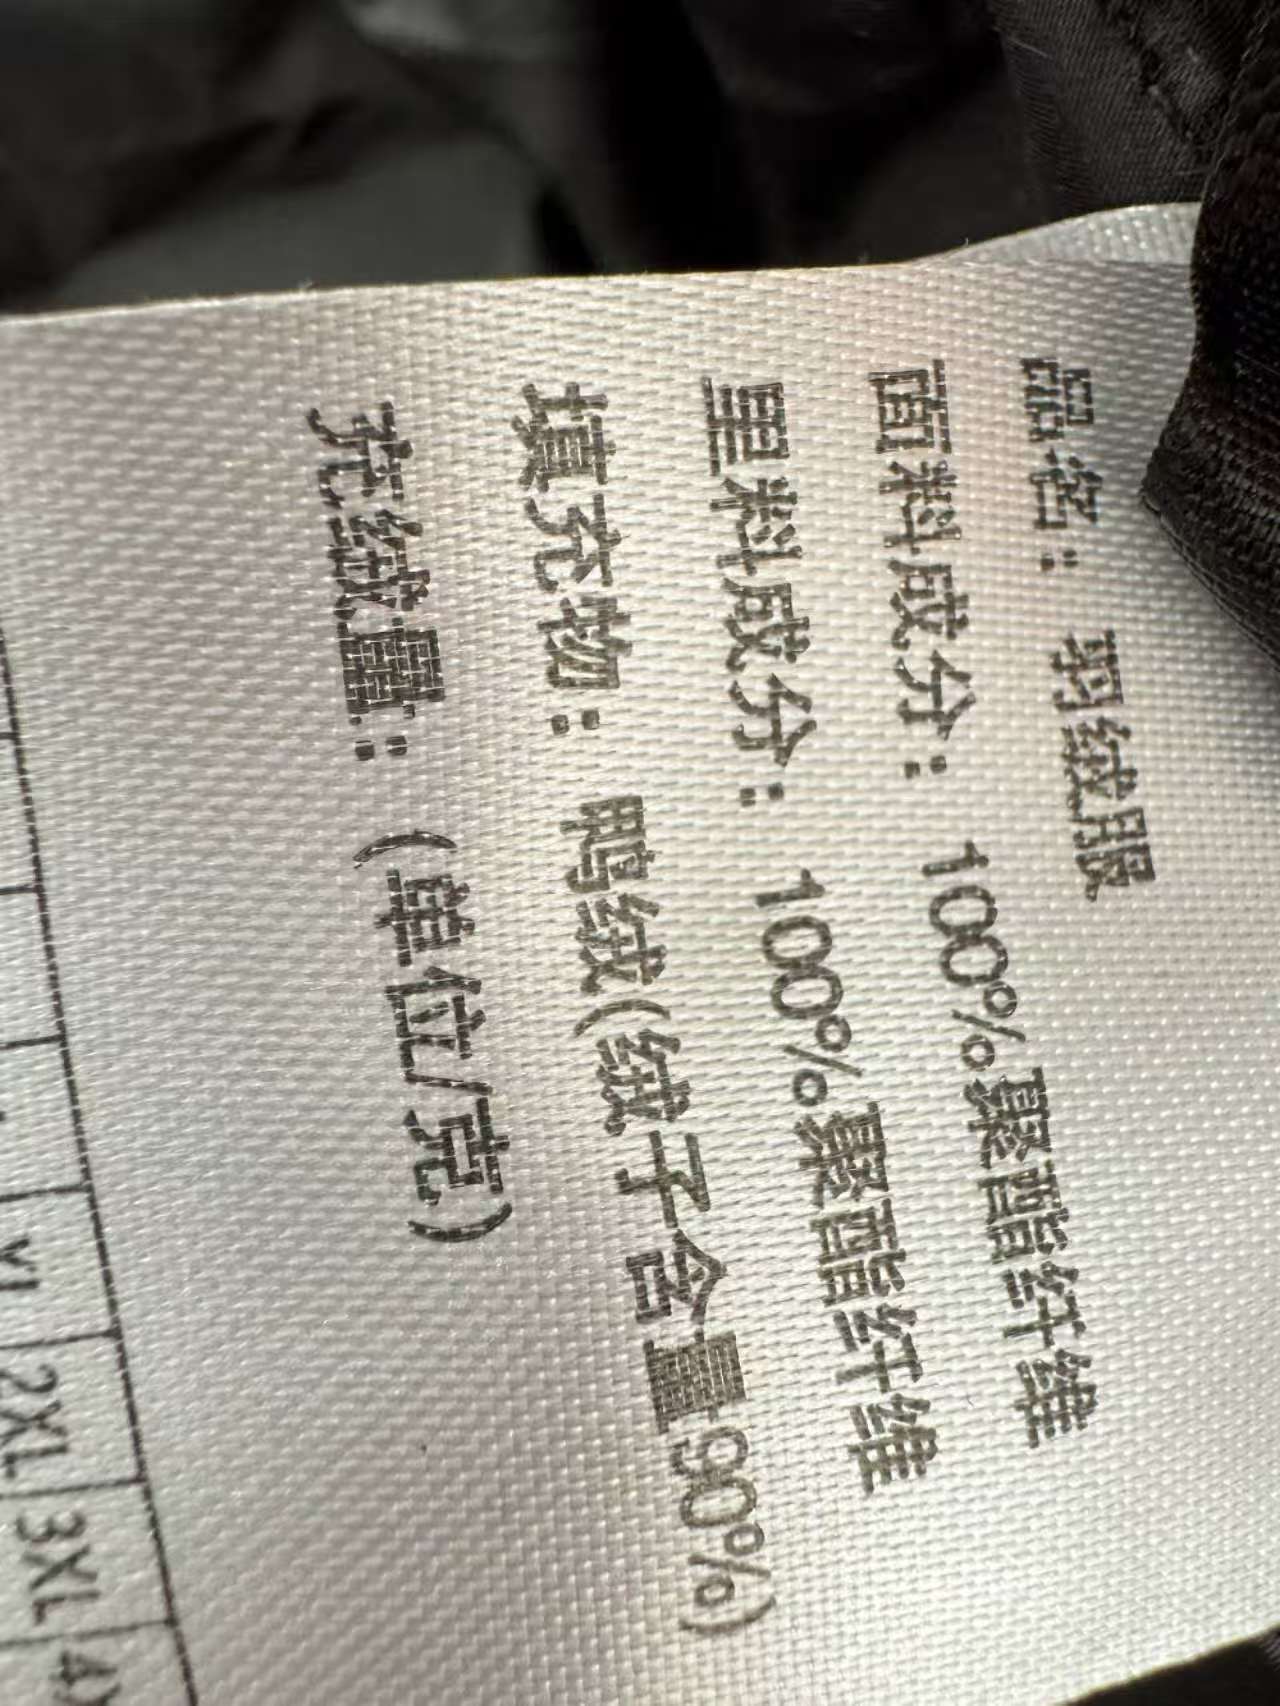 品名：羽绒服
面料成分：100%聚酯纤维
里料成分：100%聚酯纤维
填充物：鸭绒(绒子含量90%)
充绒量：(单位/克)
XL 2XL 3XL